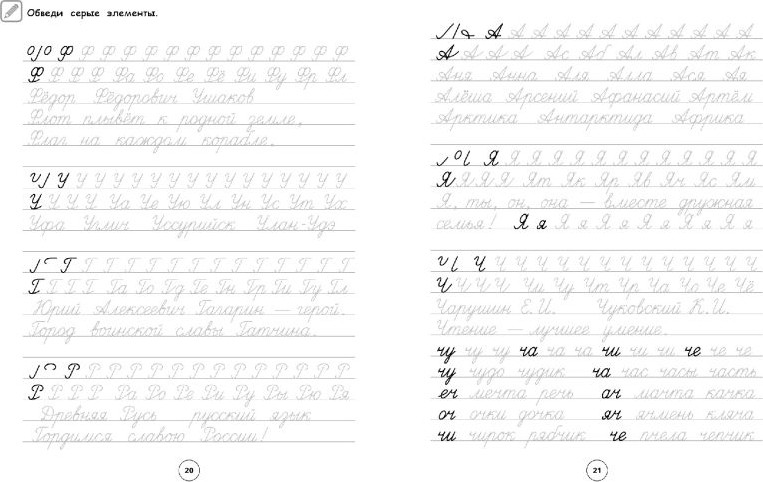 Обведи серые элементы.
Ф Ф Ф Ф Ф Ф Ф Ф Ф Ф Ф Ф Ф Ф Ф Ф
Ф Ф Ф Ф Фа Фо Фе Фё Фи Фу Фр Фл
Фёдор Фёдорович Ушаков
Флот плывёт к родной земле,
Флаг на каждом корабле.
У У У У У У У У У У У У У У У У У
У У У У Уа Уе Ую Ул Ун Ус Ут Ух
Уфа Углич Уссурийск Улан-Удэ
Г Г Г Г Г Г Г Г Г Г Г Г Г Г Г Г
Г Г Г Г Га Го Гд Ге Гн Гр Ги Гу Гл
Юрий Алексеевич Гагарин — герой.
Город воинской славы Гатчина.
Р Р Р Р Р Р Р Р Р Р Р Р Р Р Р Р
Р Р Р Р Ра Ро Ре Ри Ру Ры Рю Ря
Древняя Русь русский язык
Гордимся славою России!
20
А А А А А А А А А А А А А
А А А А Ас Аб Ал Ав Ат Ак
Аня Анна Аля Алла Ася Ая
Алёша Арсений Афанасий Артём
Арктика Антарктида Африка
Я Я Я Я Я Я Я Я Я Я Я Я Я Я
Я Я Я Я Ят Як Яп Яв Яч Яс Ям
Я, ты, он, она — вместе дружная
семья! Я я Я я Я я Я я Я я Я я
Ч Ч Ч Ч Ч Ч Ч Ч Ч Ч Ч Ч Ч Ч Ч
Ч Ч Ч Ч Чи Чу Чт Чр Ча Чо Че Чё
Чарушин Е.И. Чуковский К.И.
Чтение — лучшее умение.
чу чу чу ча ча ча чи чи чи че че че
чу чудо чудик ча час часы часть
еч мечта речь ач мачта качка
оч очки дочка яч ячмень кляча
чи чирок рябчик че пчела чепчик
21